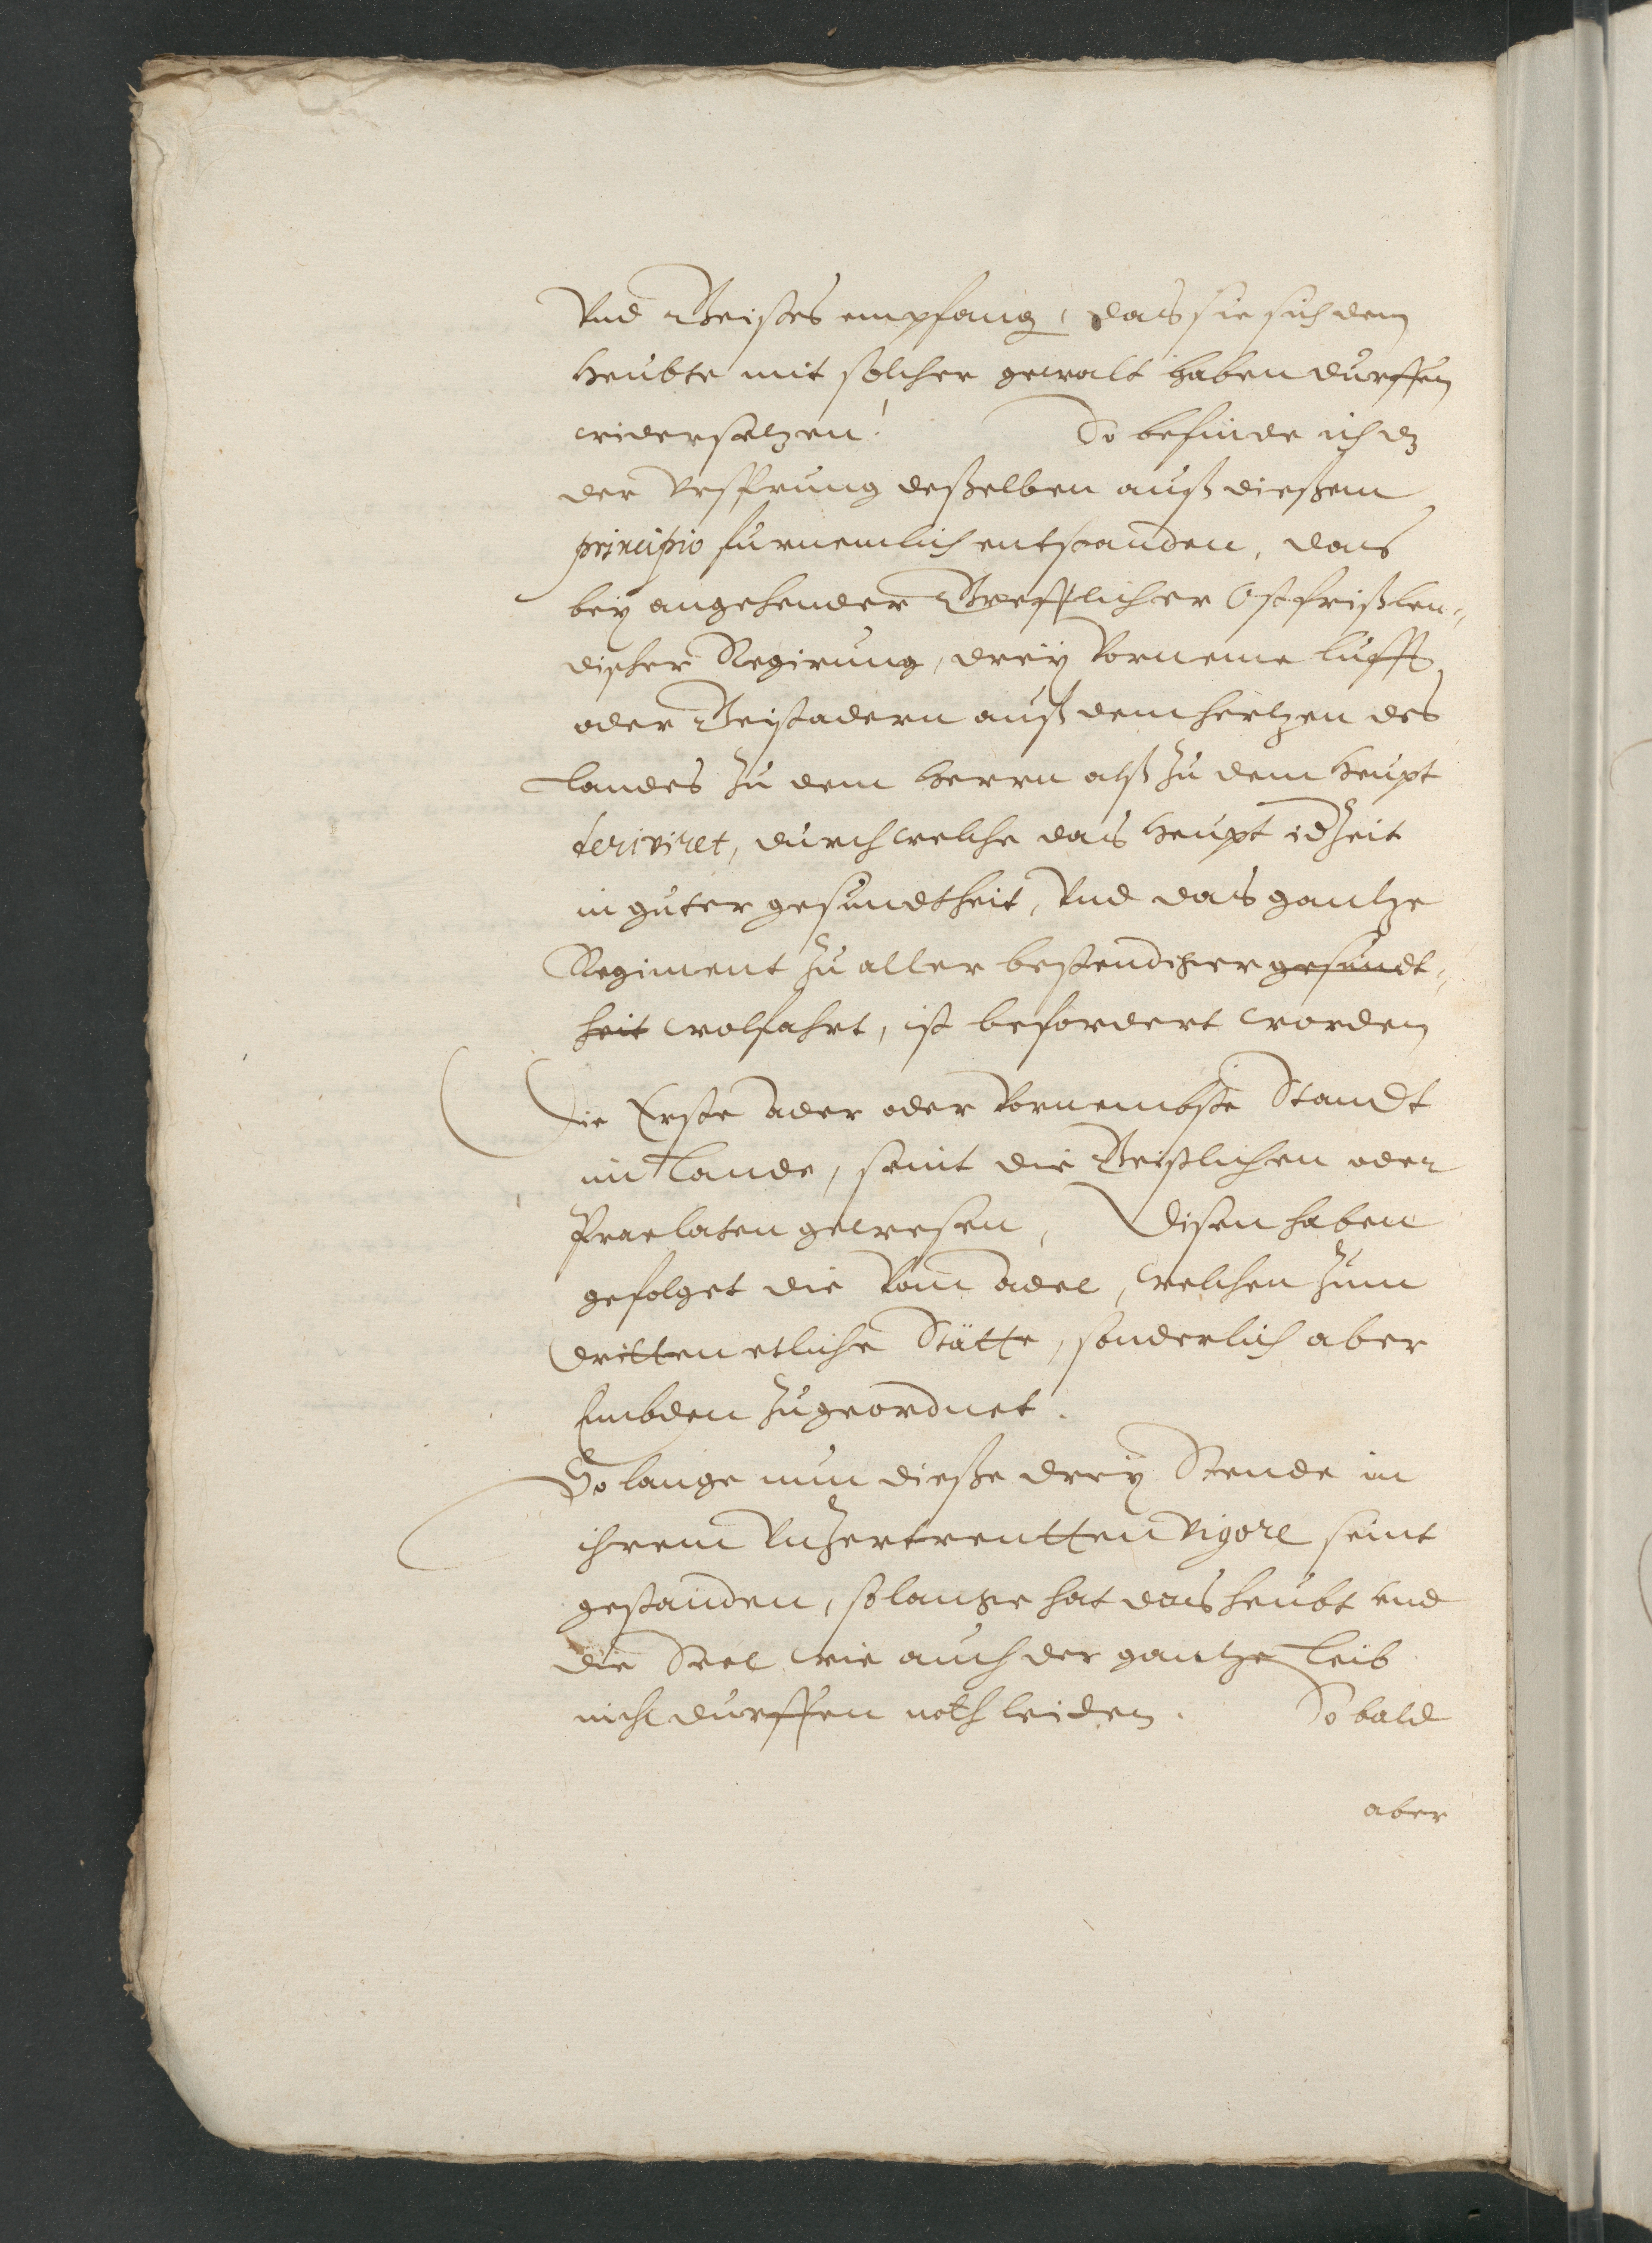 Vnd Geistes empfang, das sie sich dem
Heubte mit solcher gewalt haben durffen
widersetzen! So befinde ich dz
der Vrsprung deßelben auß dießem
principio furnemlich entstanden, das
bey angehender Grefflicher Ostfrißlen„
discher Regirung, drey Vorneme lufft
oder Geistadern auß dem hertzen des
Landes zu dem Herrn alß zu dem Heupt
deriviret, durch welche das Heupt idzeit
in guter gesundtheit, Vnd das gantze
Regiment zu aller bestendiger gesundt„
heit wolfahrt, ist befordert worden
Die Erste ader oder Vornembste Standt
im Lande, seint die Geistlichen oder
Praelaten gewesen, Disen haben
gefolget die Vom adel, welchen zum
dritten etliche Stätte, sonderlich aber
Embden zugeordnet.
So lange nun dieße drey Stende in
ihrem Vnzertrentten vigore seint
gestanden, solange hat das heubt vnd
die Seel wie auch der gantze Leib
nicht durffen noth leiden. So bald
aber